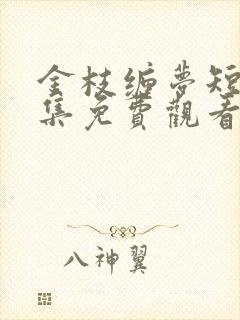 金枝缠梦短
集免費觀看
八神翼